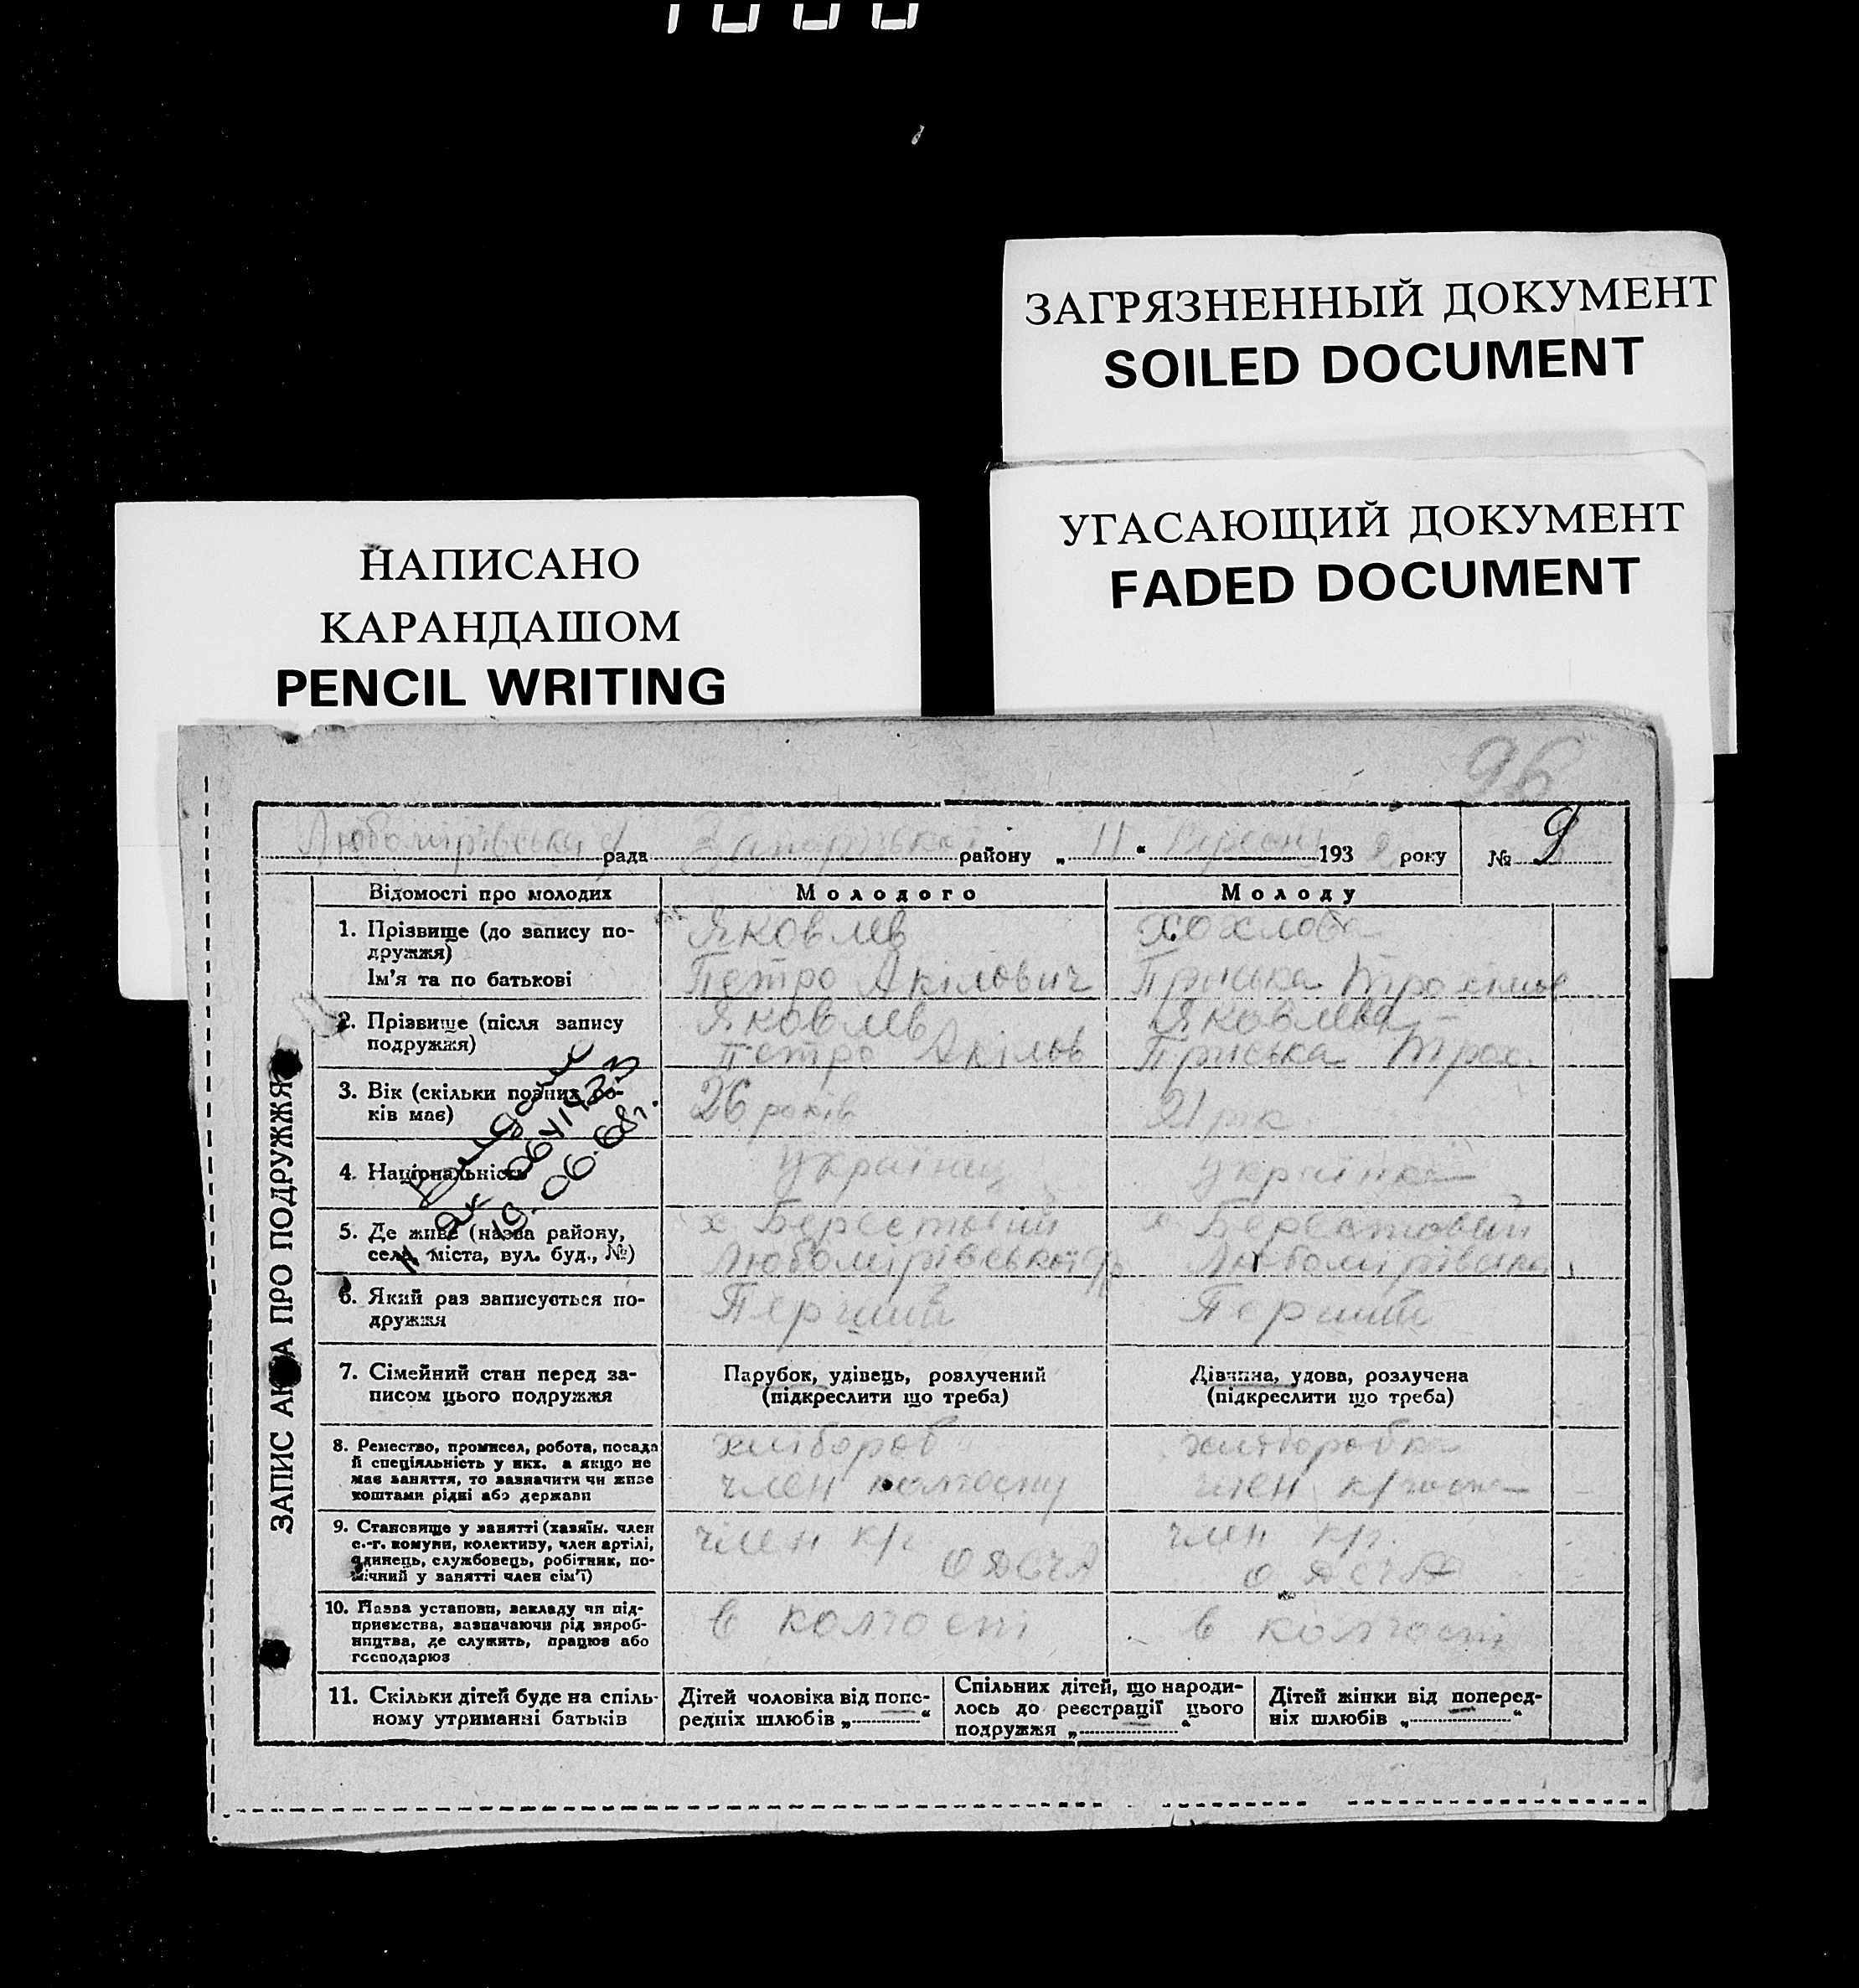 ЗАГРЯЗНЕННЫЙ ДОКУМЕНТ
SOILED DOCUMENT
УГАСАЮЩИЙ ДОКУМЕНТ
FADED DOCUMENT
НАПИСАНО
КАРАНДАШОМ
PENCIL WRITING
96
рада району „ 11 “ 193 2 року № 9
ЗАПИС АКТА ПРО ПОДРУЖЖЯ
Відомості про молодих Молодого Молоду
1. Прізвище (до запису по-
дружжя)
Ім'я та по батькові
Яковлев
Петро Акілович
Хохлова
Пріська
2. Прізвище (після запису
подружжя)
Яковлев
Петро Акілов
Яковлева
Пріська Трох.
3. Вік (скільки повних ро-
ків має)
26 років
21 рік
4. Національність
Українец
Українка
5. Де живе (назва району,
села, міста, вул. буд., №)
х Берестовий
Любомірівської с/р
х Берестовий
6. Який раз записується по-
дружжя
Перший
Перший
7. Сімейний стан перед за-
писом цього подружжя
Парубок, удівець, розлучений
(підкреслити що треба)
Дівчина, удова, розлучена
(підкреслити що треба)
8. Ремество, промисел, робота, посада
й спеціяльність у них. а якщо не
має заняття, то зазначити чи живе
коштами рідні або держави
хлібороб
член колгоспу
хліборобка
член
9. Становище у занятті (хазяїн. член
с.-г. комуни, колективу, член артілі,
одинець, службовець, робітник, по-
мічний у занятті член сім'ї)
член к/г
член к/г.
10. Назва установи, закладу чи під-
приємства, зазначаючи рід вироб-
ництва, де служить, працює або
господарює
в колгоспі
в колгоспі
11. Скільки дітей буде на спіль-
ному утриманні батьків
Дітей чоловіка від попе-
редніх шлюбів „ — “
Спільних дітей, що народи-
лось до реєстрації цього
подружжя „ — “
Дітей жінки від поперед-
ніх шлюбів „ — “
06.68г.